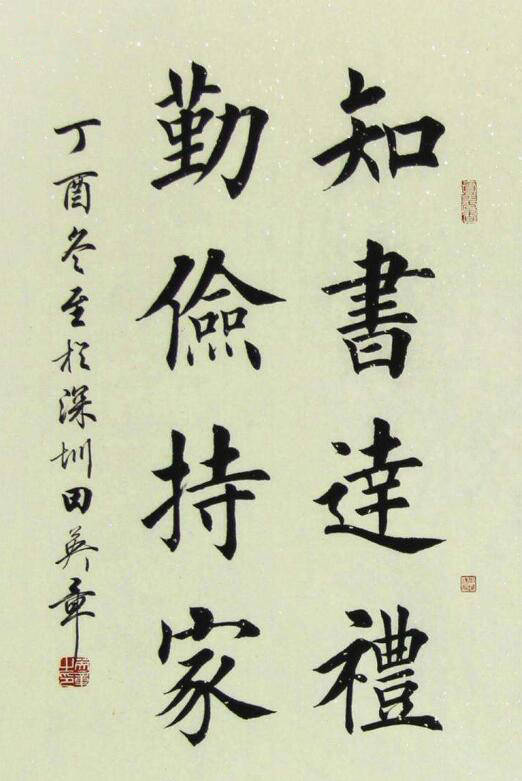 知書達禮
勤儉持家
丁酉冬至於深圳田英章